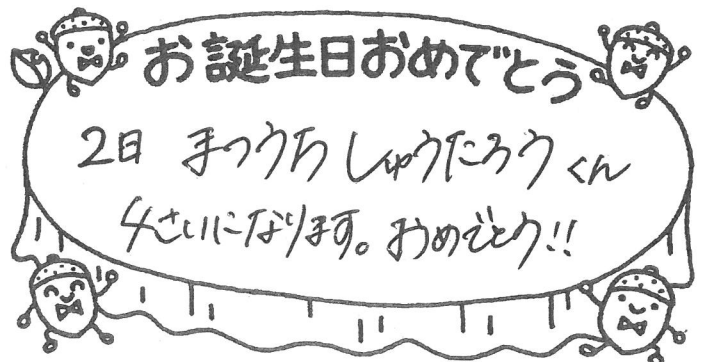 お誕生日おめでとう
2日 まつうち しゅうたろう くん
4さいになります。おめでとう!!